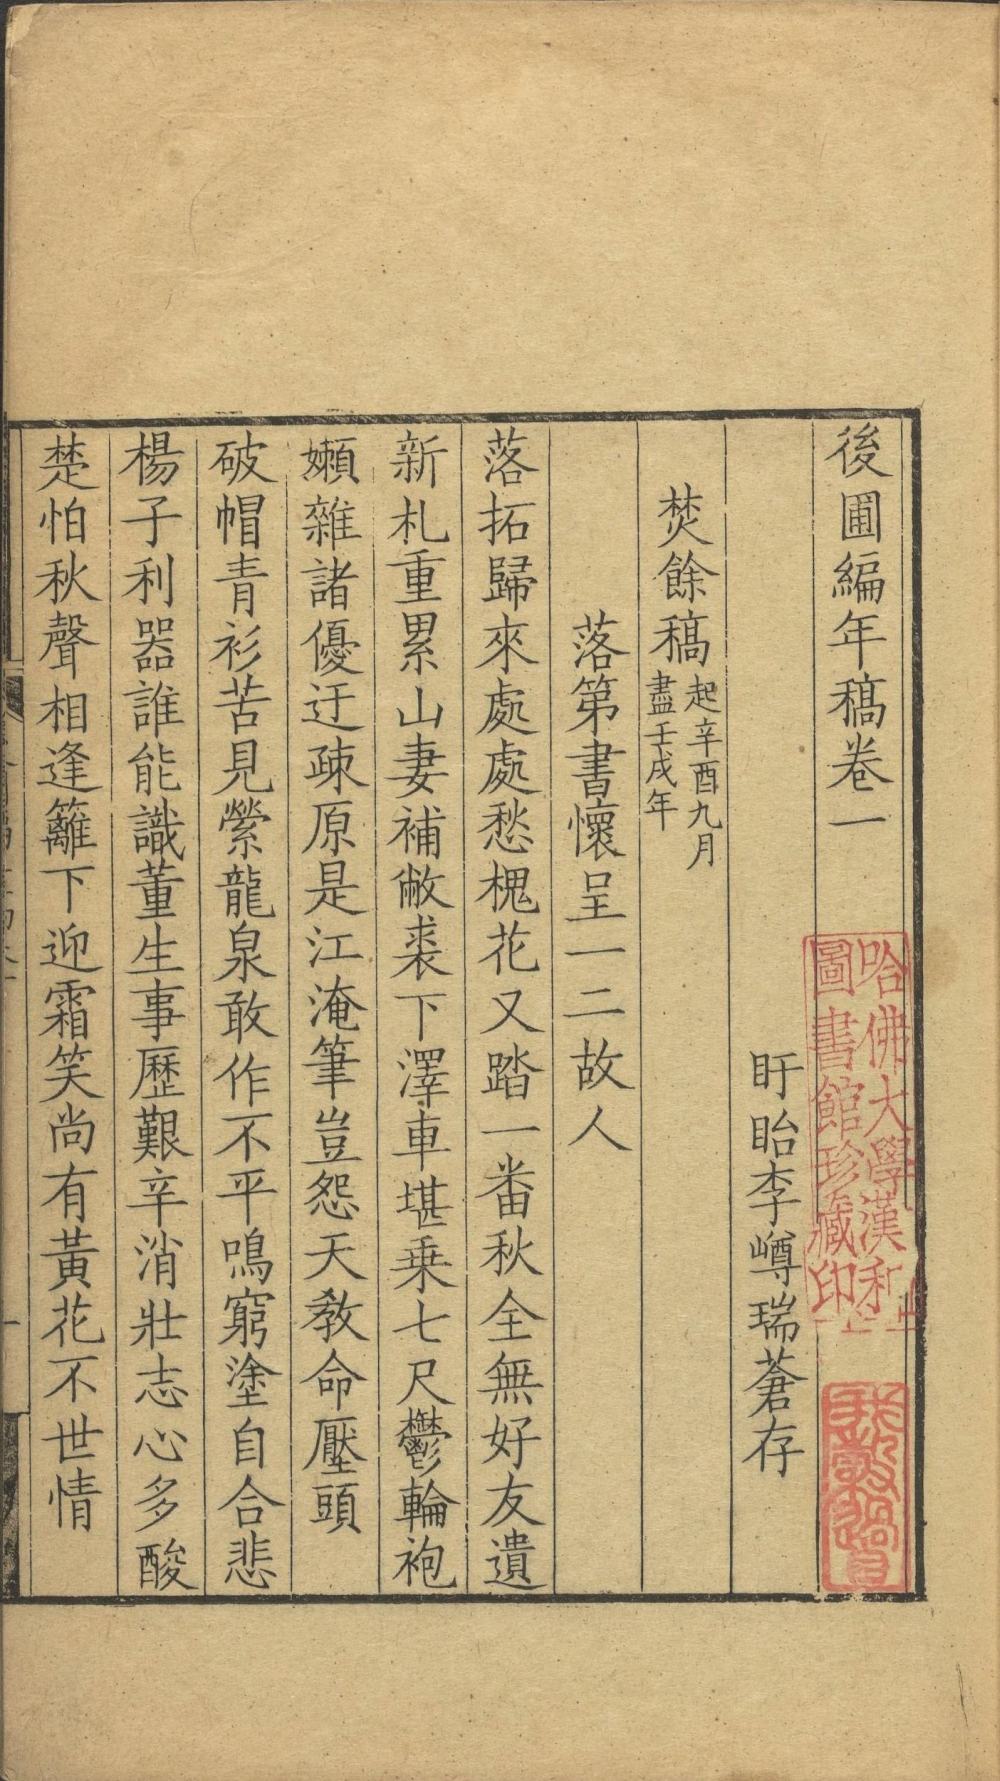 後圃編年稿卷一
盱眙李嶟瑞蒼存
焚餘稿 起辛酉九月
盡壬戌年
落第書懷呈一二故人
落拓歸來處處愁槐花又踏一番秋全無好友遺
新札重累山妻補敝裘下澤車堪乗七尺鬱輪袍
嬾雜諸優迂疎原是江淹筆豈怨天敎命壓頭
破帽青衫苦見縈龍泉敢作不平鳴窮塗自合悲
楊子利器誰能識董生事歷艱辛消壯志心多酸
楚怕秋聲相逢籬下迎霜笑尚有黃花不世情
哈佛大學漢和
圖書館珍藏印